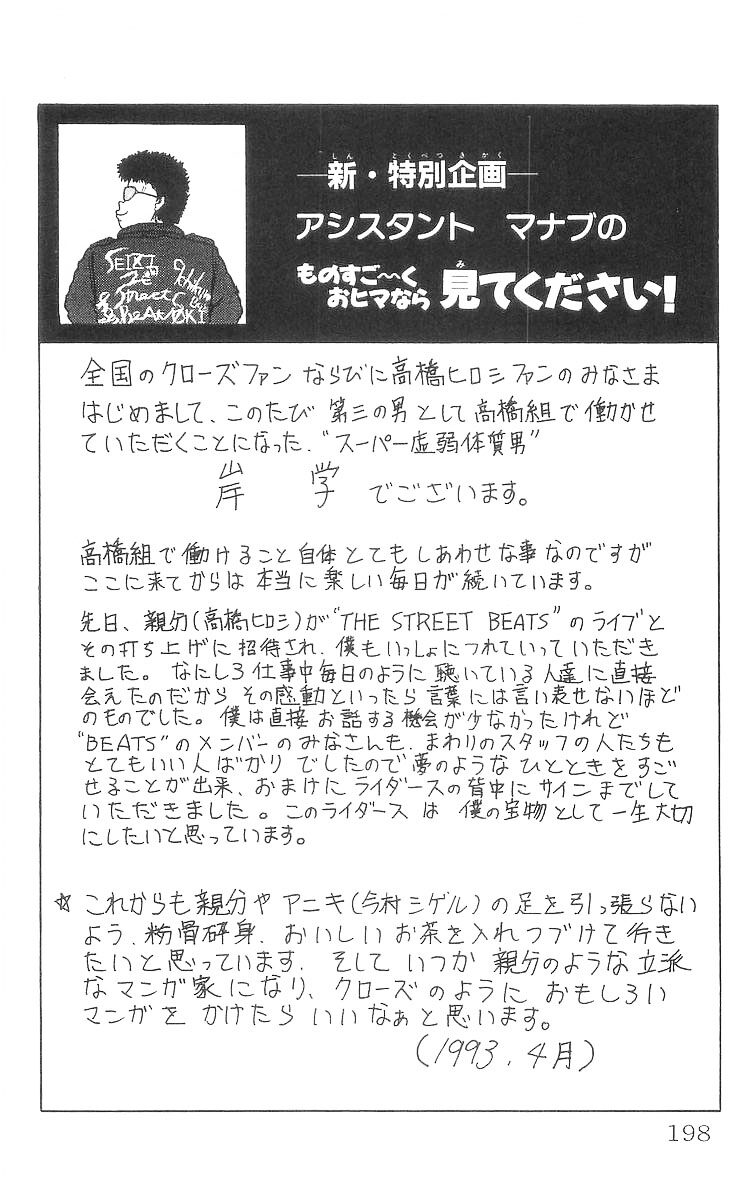 ―新・特別企画―
アシスタント マナブの
ものすご〜く
おヒマなら 見てください!
SEIKI
Street
BeAt OKI
全国のクローズファン ならびに高橋ヒロシファンのみなさま
はじめまして、このたび 第三の男として高橋組で働かせ
ていただくことになった、“スーパー虚弱体質男”
岸 学 でございます。
高橋組で働けること自体とてもしあわせな事なのですが
ここに来てからは本当に楽しい毎日が続いています。
先日、親分(高橋ヒロシ)が“THE STREET BEATS”のライブと
その打ち上げに招待され、僕もいっしょにつれていっていただき
ました。なにしろ仕事中毎日のように聴いている人達に直接
会えたのだから その感動といったら言葉には言い表せないほど
のものでした。僕は直接お話する機会が少なかったけれど
“BEATS”のメンバーのみなさんも、まわりのスタッフの人たちも
とてもいい人ばかりでしたので夢のようなひとときをすご
せることが出来、おまけにライダースの背中にサインまでして
いただきました。このライダースは僕の宝物として一生大切
にしたいと思っています。
☆これからも親分やアニキ(今村シゲル)の足を引っ張らない
よう、粉骨砕身、おいしいお茶を入れつづけて行き
たいと思っています。そして いつか 親分のような立派
なマンガ家になり、クローズのようにおもしろい
マンガを かけたらいいなぁと思います。
(1993.4月)
198